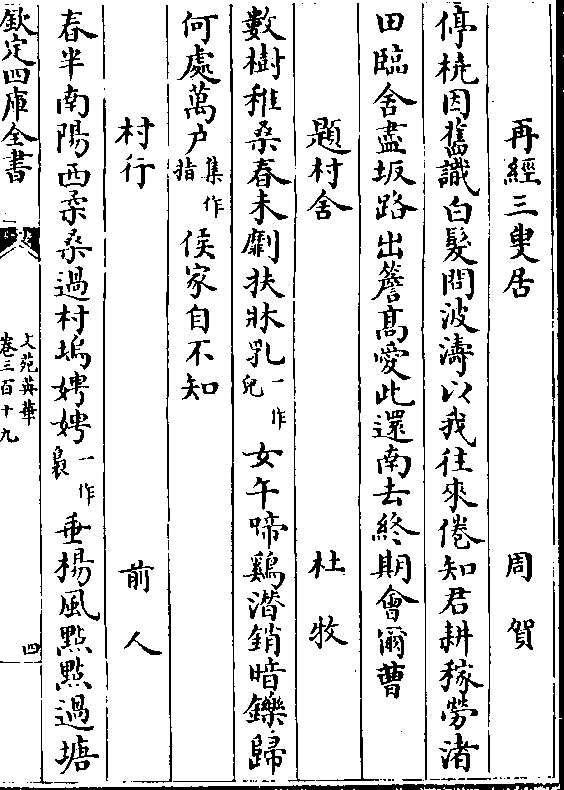 再經三叟居　周賀
停橈因舊識白髮問波濤以我往來倦知君耕稼勞渚
田臨舍盡坂路出簷髙愛此還南去終期會爾曹
題村舍　杜牧
數樹稚桑春未劚扶牀乳一作兒女午啼鷄潛銷暗鑠歸
何處萬户集作指侯家自不知
村行　前人
春半南陽西柔桑過村塢娉娉一作裊垂楊風點點過塘
文苑英華
卷三百十九
四
欽定四庫全書